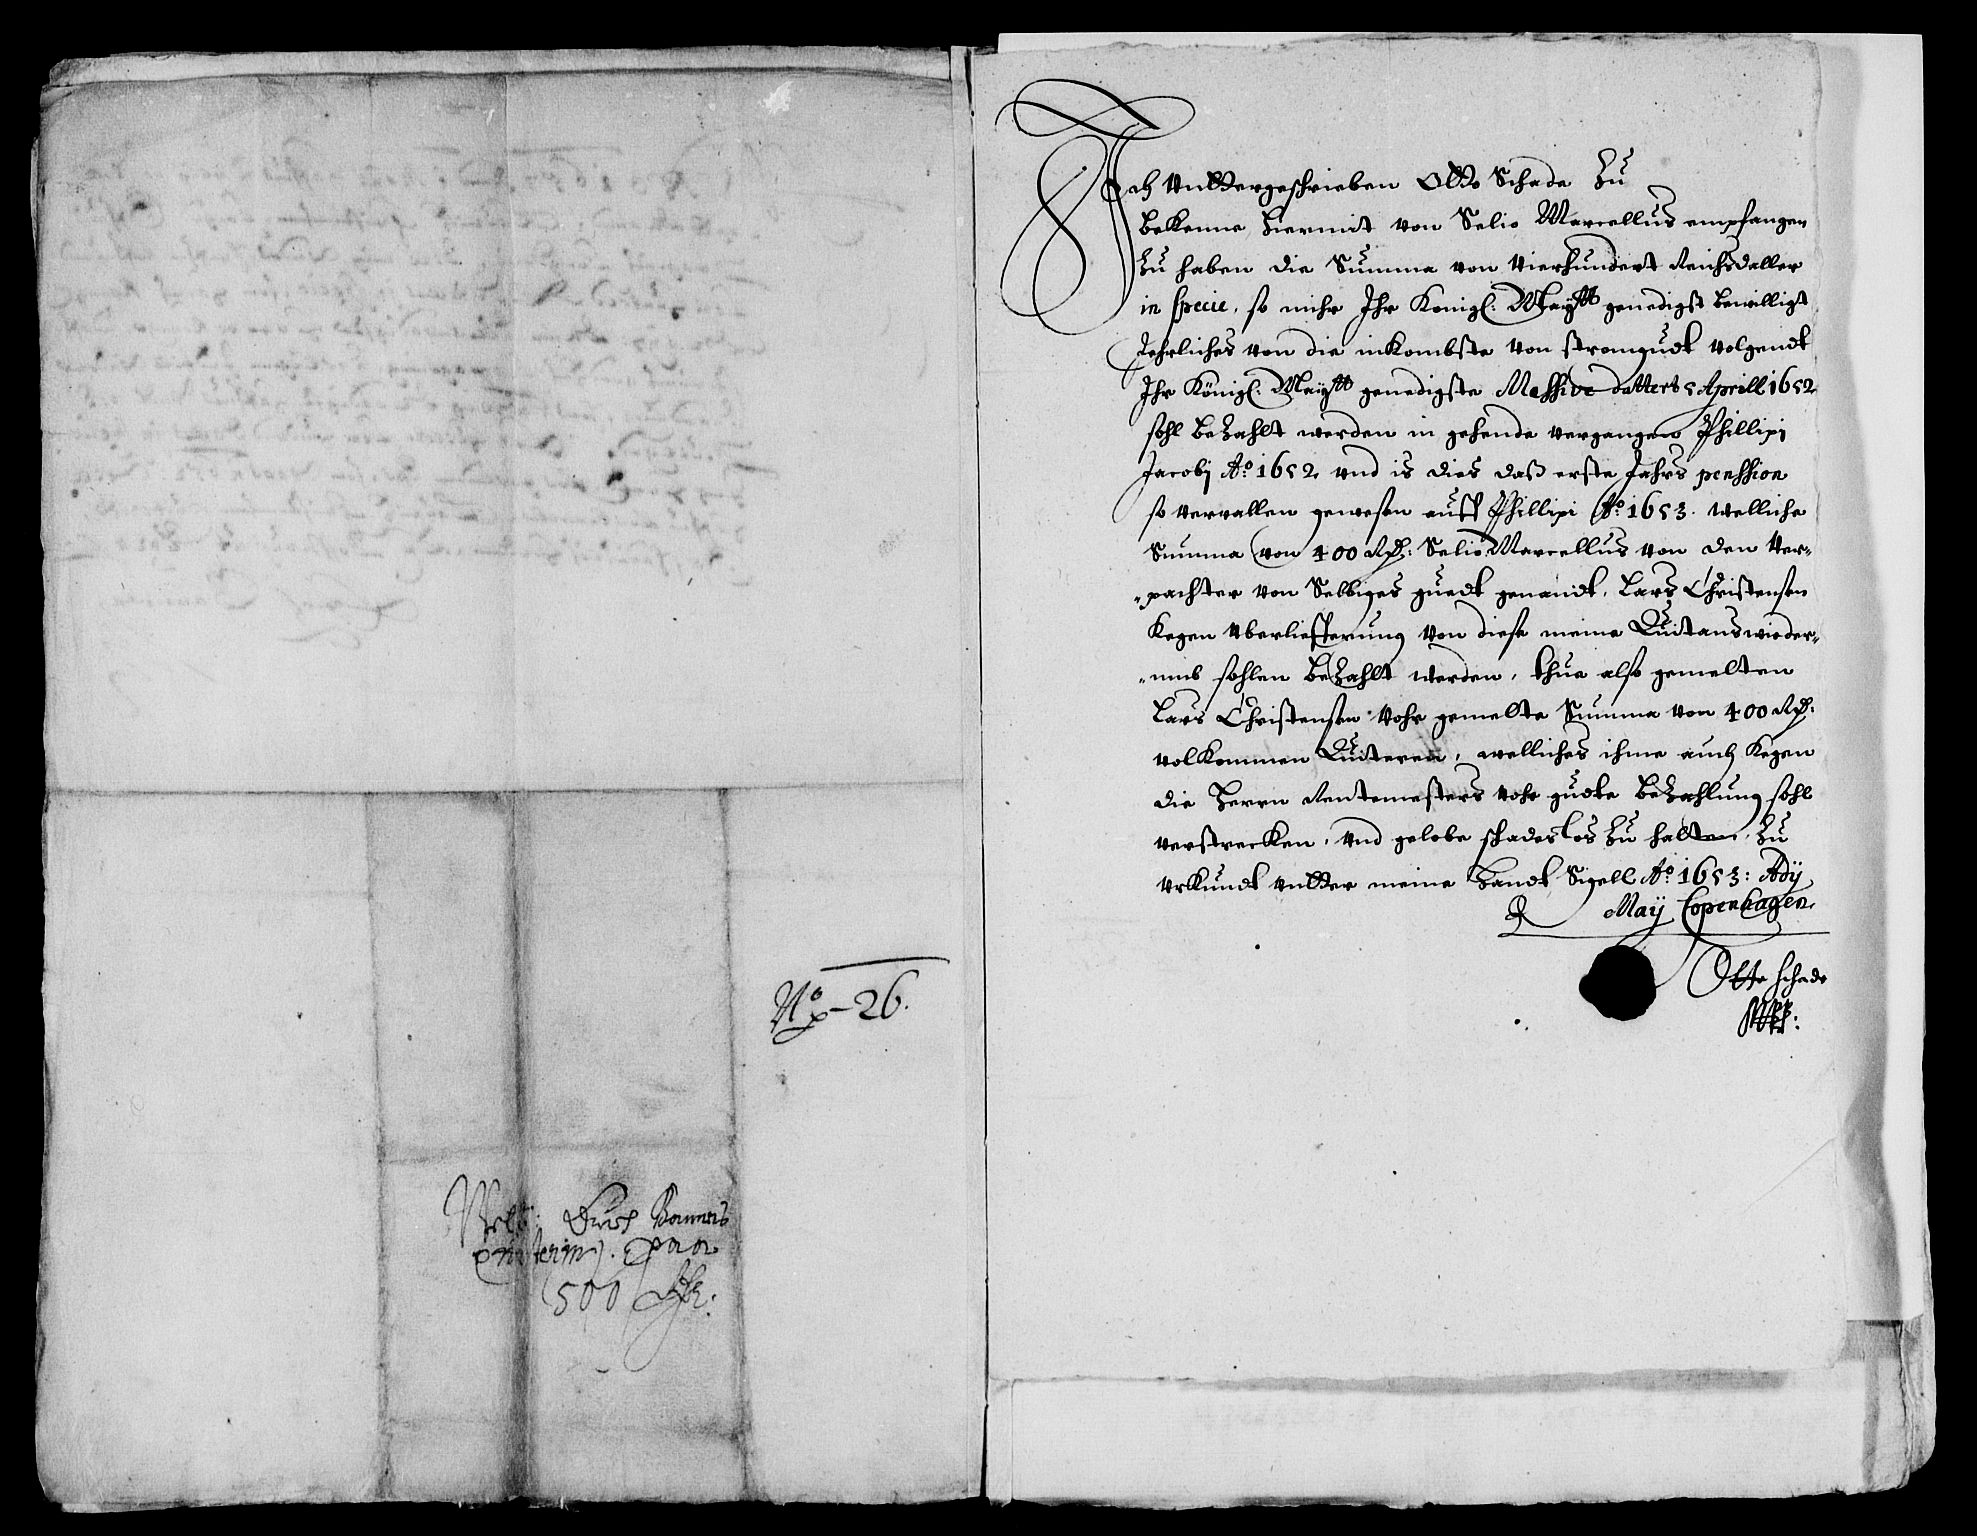 No 26.
500
Ich Unttergeschrieben Otto Schade Zu
bekenne hiermit von Selio Marcellus empfangen
Zu haben die Summa von Vierhundert Reichsdaller
in specie, so mihr Ihr Königl: Maytt genedigst bewilligt
Jehrliches von die inkombste von stromgudt volgendt
Ihr Königl: Maytt genedigste Missive dattert 5 Aprill 1652
sohl bezahlt werden in gehende vergangen Phillipi
Jacobj Ao: 1652 und is dies daß erste Jahrs penssion
so vervallen gewesen auff Phillipi Ao: 1653. welliche
Summa von 400 Rd: Selio Marcellus von den Ver-
-pachter von Selbiges guedt genandt, Lars Christensen
Kegen Uberliefferung von diese meine Quitans wieder-
-umb sohlen bezahlt werden, thue also gemelten
Lars Christensen vohr gemelte Summa von 400 Rd:
volkommen Quiteren, welliches ihme auch Kegen
die Herrn Rentemesters vohr gudte bezahlung sohl
verstrecken, und gelobe schadeslos Zu halten, Zu
Urkundt untter meine Handt Sigell Ao: 1653: Ady
May Copenhagen
Otte Schade
Mpp: